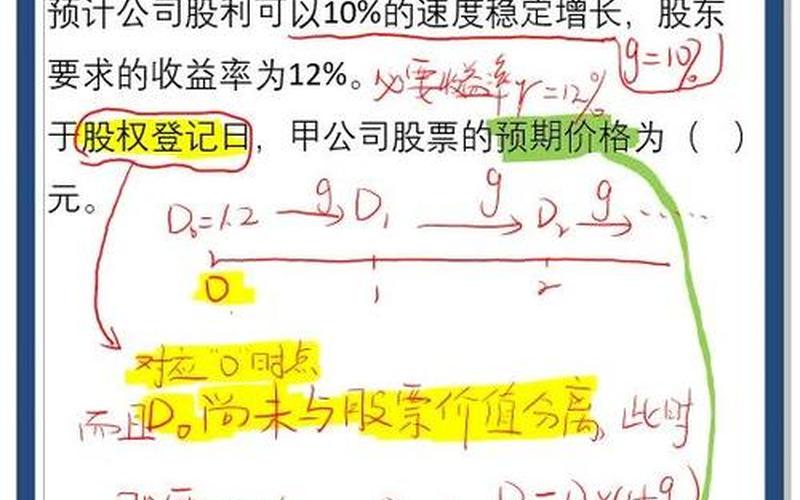 预计公司股利可以10%的速度稳定增长，股东
g=10%
要求的收益率为12%。必要收益率r=12%
于股权登记日，甲公司股票的预期价格为（ ）
元。
D₀=1.2 g D₁ g D₂ g ……
0 1 2
对应"0"时点
而且D₀尚未与股票价值分离，此时